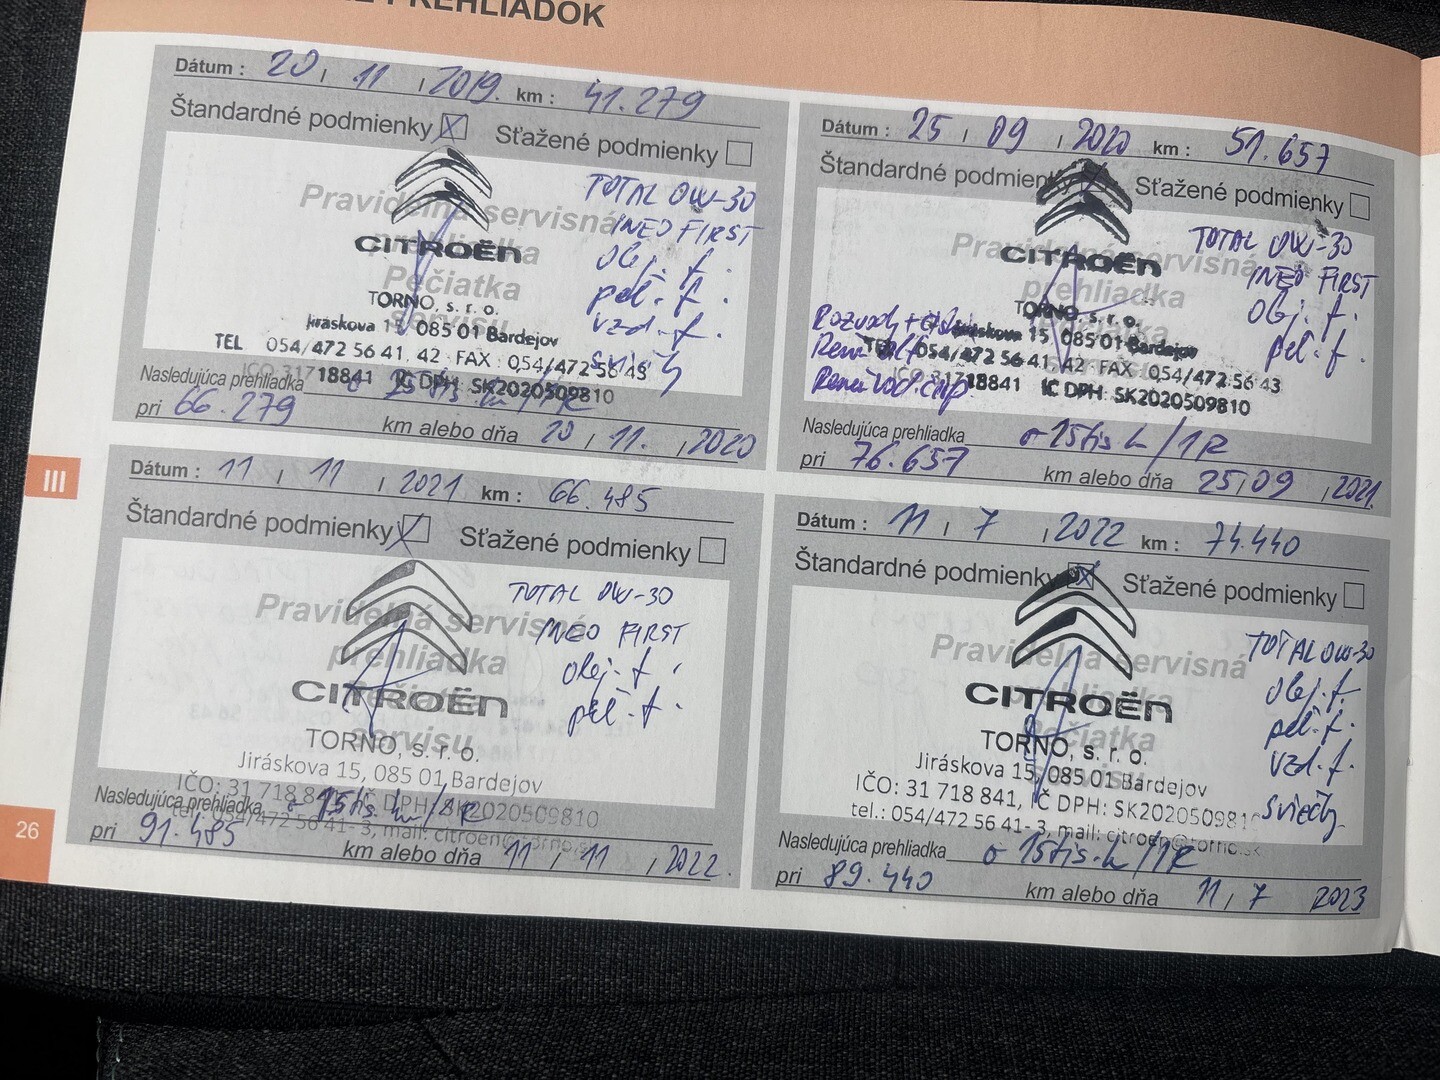 PREHLIADOK
Dátum : 20 / 11 / 2019. km : 41.279
Štandardné podmienky X Sťažené podmienky
Pravidelná servisná
prehliadka
Pečiatka
servisu
TOTAL 0W-30
INEO FIRST
olej. f.
pel. f.
vzd. f.
sviečky
CITROËN
TORNO, s. r. o.
Jiráskova 15, 085 01 Bardejov
TEL 054/472 56 41, 42 · FAX : 054/472 56 43
IČO 31718841 IČ DPH: SK2020509810
Nasledujúca prehliadka
pri 66.279 km alebo dňa 20 / 11. / 2020
Dátum : 25 / 09 / 2020 km : 51.657
Štandardné podmienky Sťažené podmienky
Pravidelná servisná
prehliadka
TOTAL 0W-30
INEO FIRST
olej. f.
pel. f.
CITROËN
TORNO, s. r. o.
Rozvody +
Jiráskova 15, 085 01 Bardejov
TEL 054/472 56 41, 42 · FAX : 054/472 56 43
IČO 31718841 IČ DPH: SK2020509810
Nasledujúca prehliadka o 15tis km/1R
pri 76.657 km alebo dňa 25 / 09 / 2021.
III
Dátum : 11 / 11 / 2021 km : 66.485
Štandardné podmienky X Sťažené podmienky
Pravidelná servisná
prehliadka
Pečiatka
servisu
TOTAL 0W-30
INEO FIRST
olej. f.
pel. f.
CITROËN
TORNO, s. r. o.
Jiráskova 15, 085 01 Bardejov
IČO: 31 718 841, IČ DPH: SK2020509810
tel.: 054/472 56 41- 3, mail: citroen@torno.sk
Nasledujúca prehliadka o 15tis km/1R
pri 91.485 km alebo dňa 11 / 11 / 2022.
Dátum : 11 / 7 / 2022 km : 74.440
Štandardné podmienky X Sťažené podmienky
Pravidelná servisná
prehliadka
Pečiatka
servisu
TOTAL 0W-30
olej. f.
pel. f.
vzd. f.
sviečky
CITROËN
TORNO, s. r. o.
Jiráskova 15, 085 01 Bardejov
IČO: 31 718 841, IČ DPH: SK2020509810
tel.: 054/472 56 41- 3, mail: citroen@torno.sk
Nasledujúca prehliadka o 15tis. km/1R
pri 89.440 km alebo dňa 11 / 7 2023
26